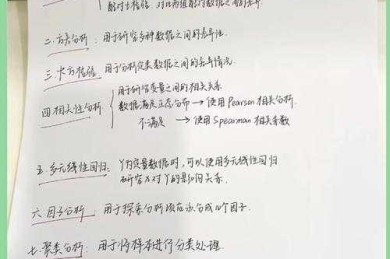 配对t检验,对比两组配对数据之间的差异
二.方差分析:用于研究多种数据之间的差异性.
三.卡方检验:用于分析定类数据之间的差异情况.
四.相关性分析
用于研究变量之间的相关关系
数据满足正态分布→使用Pearson相关分析.
不满足→使用Spearman相关系数
五.多元线性回归:Y为定量数据时,可以使用多元线性回归
研究X对Y的影响关系.
六.因子分析:用于探索分析项在出
成个因子.
七.聚类分析:用于将样本进行分类处理.